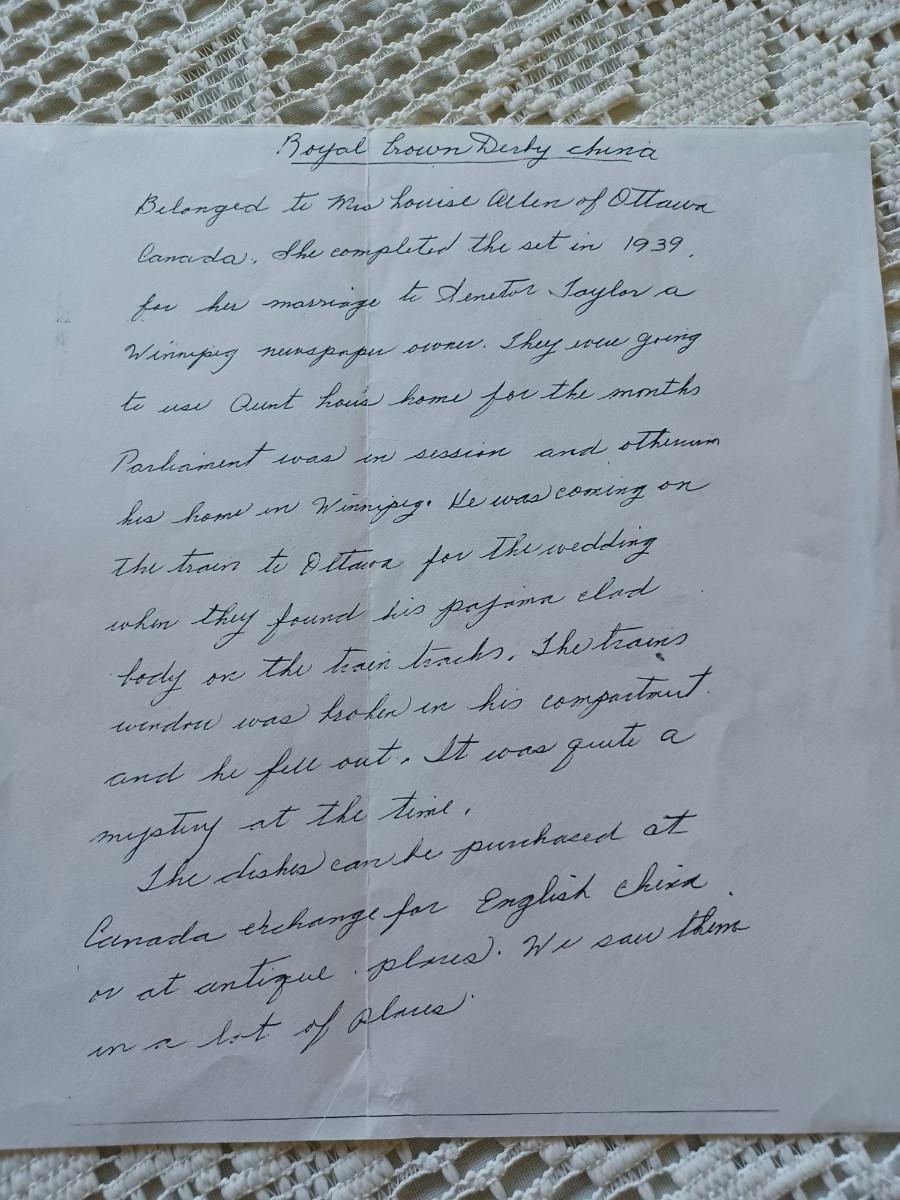 Royal Crown Derby china
Belonged to Mrs Louise Allen of Ottawa
Canada. She completed the set in 1939,
for her marriage to Senetor Taylor a
Winnipeg newspaper owner. They were going
to use Aunt Lou's home for the months
Parliament was in session and otherwise
his home in Winnipeg. He was coming on
the train to Ottawa for the wedding
when they found his pajama clad
body on the train tracks. The trains
window was broken in his compartment
and he fell out. It was quite a
mystery at the time.
The dishes can be purchased at
Canada exchange for English china
or at antique places. We saw them
in a lot of places.